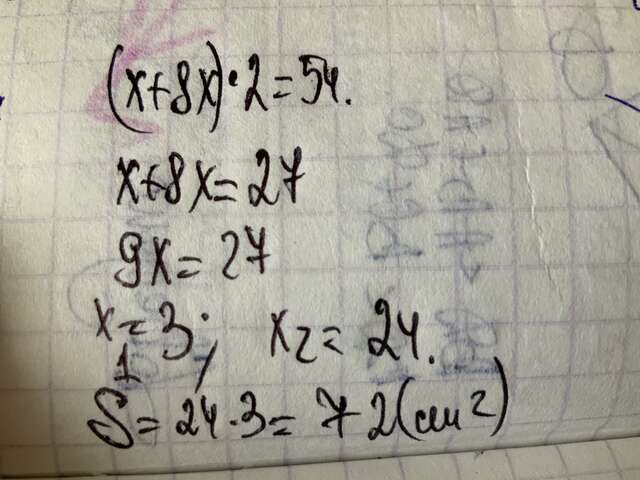 (x+8x)·2=54.
x+8x=27
9x=27
x₁=3; x₂=24.
S=24·3=72(см²)